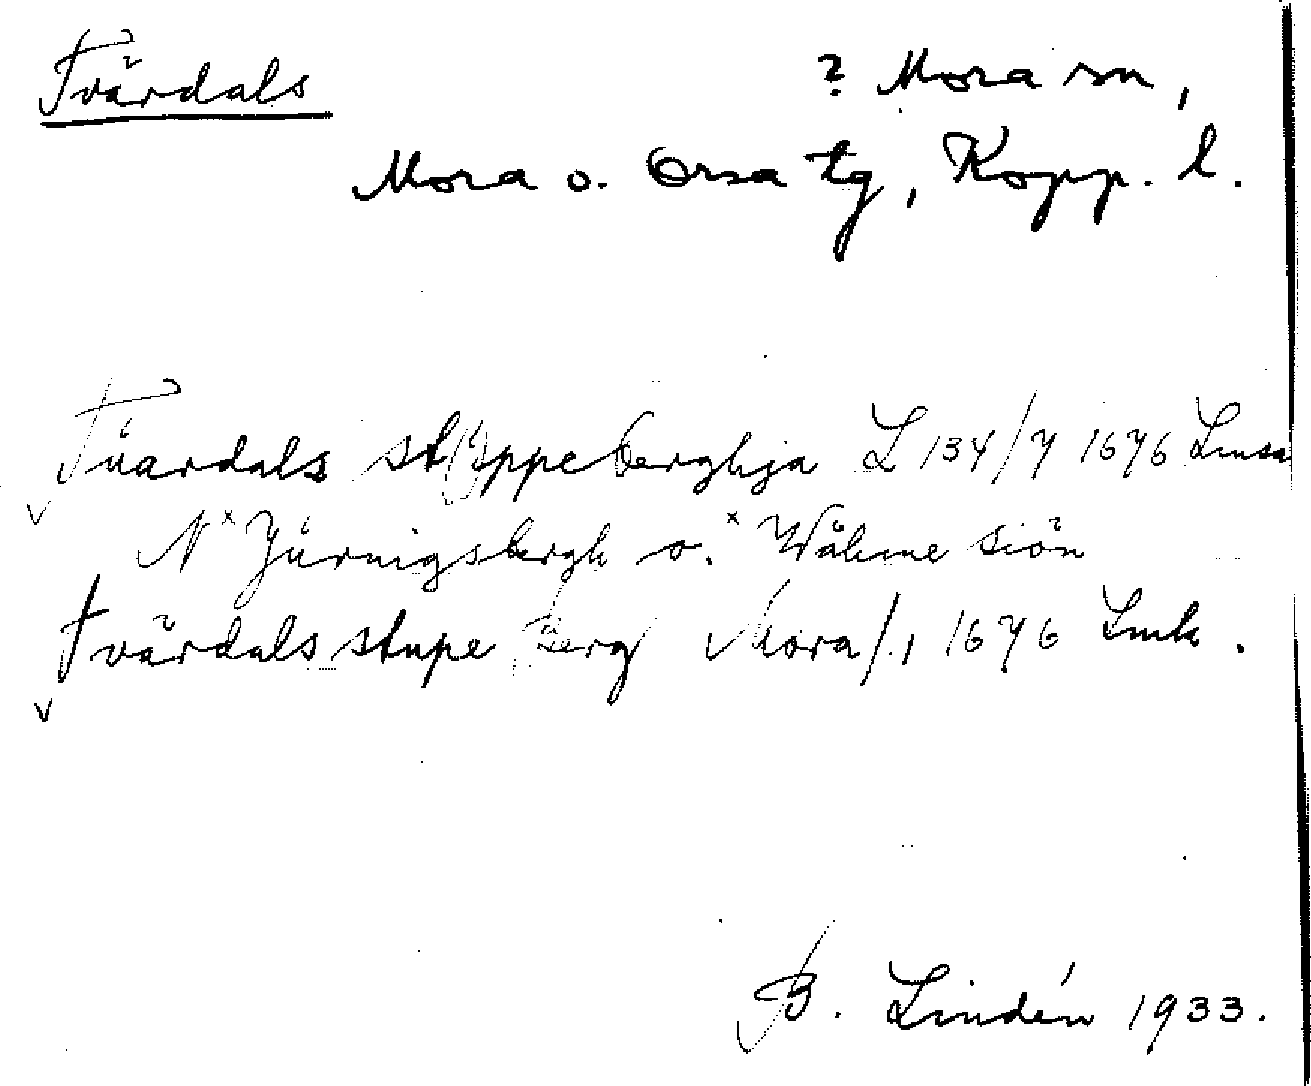 Tvärdals
? Mora sn,
Mora o. Orsa tg, Kopp. l.
Tüardals stöppeberghja L 134/7 1676 Lmsa
N x Jürnigsbergh o. x Wåhme siön
Tvärdals stupe berg Mora/.1 1676 Lmk.
B. Lindén 1933.